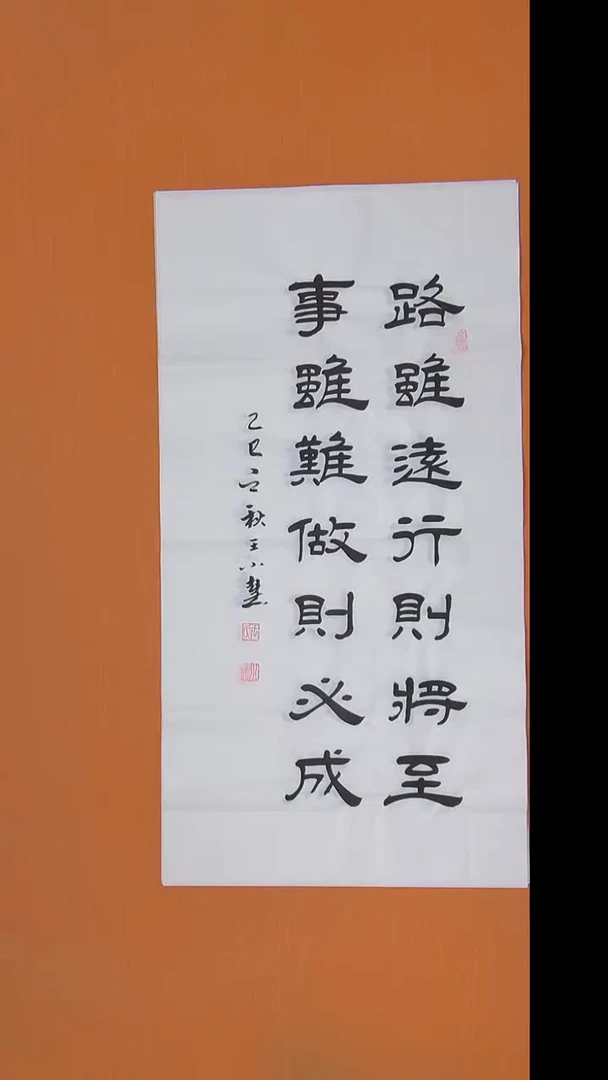 路雖遠行則將至
事雖難做則必成
乙巳之秋王小慧